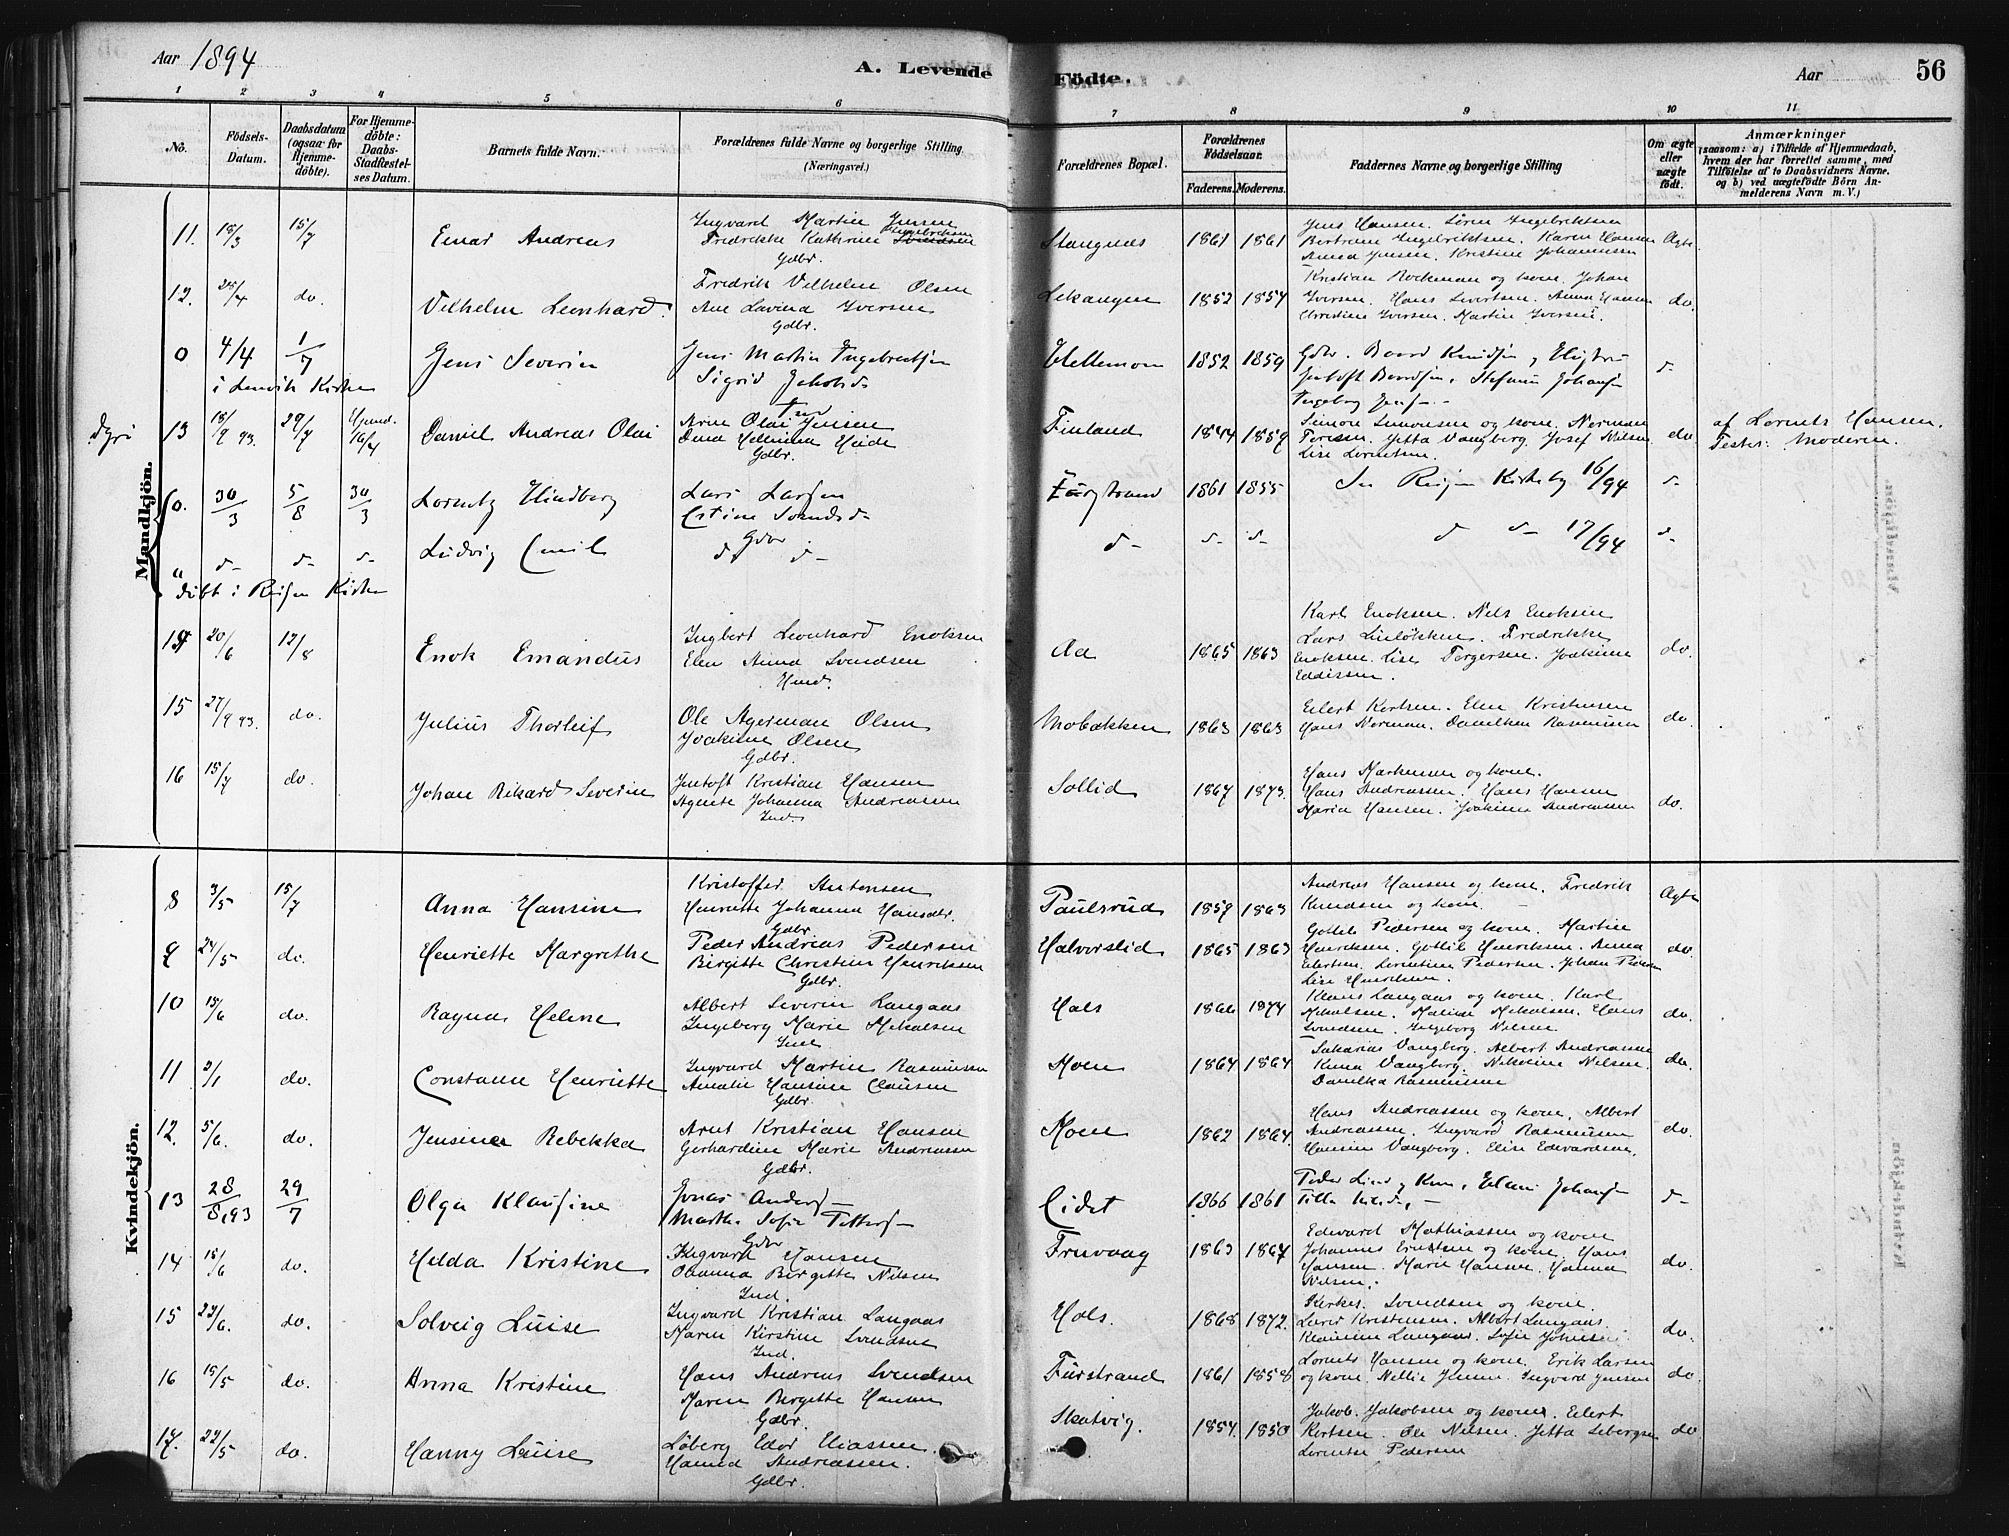 Aar 1894
A. Levende Födte.
Aar
56
1 2 3 4 5 6 7 8 9 10 11
No.
Födsels-Datum.
Daabsdatum (ogsaa for Hjemme-döbte).
For Hjemme-döbte: Daabs-Stadfæstel-ses Datum.
Barnets fulde Navn.
Forældrenes fulde Navne og borgerlige Stilling (Næringsvei.)
Forældrenes Bopæl.
Forældrenes Födselsaar.
Faderens. Moderens.
Faddernes Navne og borgerlige Stilling
Om ægte eller uægte födt.
Anmærkninger
(saasom: a) i Tilfælde af Hjemmedaab, hvem der har forrettet samme, med Tilföielse af to Daabsvidners Navne. og b) ved uægtefödte Börn An-melderens Navn m. V.)
Mandkjön.
11. 18/3 15/7 Einar Andreas
Ingvard Martin Jensen
Fredrikke Kathrine Ingebriktsen
Gdbr.
Stangnes 1861 1861
Jens Hansen. Sören Ingebriktsen
Bertrem Ingebriktsen. Karen Hansen
Anna Jensen. Kristine Johannessen
Ægte.
12. 25/4 do. Vilhelm Leonhard.
Fredrik Vilhelm Olsen
Ane Lavina Iversen
Gdbr.
Lekangen 1852 1854
Kristian Rockman og kone. Johan
Iversen. Hans Sivertsen. Anna Hansen
Christine Iversen. Martin Iversen.
do.
0 4/4 1/7 Jens Severin
i Lenvik Kirke
Jens Martin Ingebrectsen
Sigrid Jakobsd
Hellemoen 1852 1859
dyrö 13 18/9 93. 29/7 Hjemd. 16/4 Daniel Andreas Olai
Arne Olai Jensen
Dina Helmina Heide
Gdbr.
Finland 1844 1859
Simon Simonsen og kone. Norman
Toresen. Jetta Vangberg. Josef Nilsen
Lise Lorentsen.
do.
af Lornts Hansen.
Testes: Moderen.
0. 30/3 5/8 30/3 Lorentz Hindberg
Lars Larsen
Gdbr
1861 1855
Se Reisen Kirkebog 16/94
" d- d- d- Ludvig Emil
d d-
d- d- d- d d- 17/94 d-
döbt i Reisen Kirke
14 20/6 12/8 Enok Emandus
Ingbert Leonhard Enoksen
Elen Anna Svendsen
Hmd.
Aa 1865 1863
Karl Enoksen. Nels Enoksen
Lars Linløkken. Fredrikke
Enoksen. Lise Torgersen. Joakime
Eddissen.
do.
15 27/9 93. do. Julius Thorleif
Ole Agerman Olsen
Joakime Olsen
Gdbr.
Mobakken 1863 1863
Eilert Kortsen. Elen Kristensen
Hans Norman. Danilkea Rasmussen
do.
16 15/7 do. Johan Rikard Severin
Jentoft Kristian Hansen
Agnete Johanna Andreasen
Ind.
Sollid 1867 1873.
Hans Markussen og kone.
Hans Andreassen. Hans Hansen
Maria Hansen. Joakime Andreassen
do.
Kvindekjön.
8 3/5 15/7 Anna Hansine
Kristoffer Antonsen
Henriette Johanna Hansdtr.
Gdbr
Paulsrud 1859 1863
Andreas Hansen og kone. Fredrik
Knudsen og kone.
Ægte
9 24/5 do. Henriette Margrethe
Peder Andreas Pedersen
Birgitte Christine Henriksen
Gdbr.
Halvorslid 1865 1863
Gottlib Pedersen og kone. Martin
Henriksen. Gottlib Henriksen. Anna
Eilertsen. Lorentine Pedersen. Johan Pedersen
Lise Henriksen.
do.
10 15/6 do. Ragna Heline
Albert Severin Langaas
Ingeborg Marie Mikalsen
Ind.
Hals 1866 1874
Klaus Langaas og kone. Karl
Mikalsen. Maline Mikalsen. Hans
Svendsen. Ingeborg Nilsen.
do.
11 2/1 do. Constanse Henriette
Ingvard Martin Rasmussen
Amalie Hansine Clausen
Gdbr.
Moen 1864 1864
Sakarias Vangberg. Albert Andreassen
Kuna Vangberg. Nikoline Nilsen.
Danilka Rasmussen
do.
12. 5/6. do. Jensine Rebekka
Arnt Kristian Hansen
Gerhardine Marie Andreassen
Gdbr.
Moen 1862 1864.
Hans Andreassen og kone. Albert
Andreassen. Ingvard Rasmussen
Hansine Vangberg. Elise Edvardsen.
do.
13 28/8, 93 29/7 Olga Klausine
Jonas Anders-
Gdbr
Lidet 1866 1861
d-
14 15/6 do. Helda Kristine
Ingvard Hansen
Oluanna Birgitte Nilsen
Ind.
Truvaag 1863 1867
Edvard Mathiassen og kone
Johannes Erntsen og kone. Hans
Hansen. Marie Hansen. Hanna
Nilsen.
do.
15 22/6. do. Solveig Luise
Ingvard Kristian Langaas
Maren Kirstine Svendsen
Ind.
Hals. 1868 1872.
Kerker. Svendsen og kone.
Lavid Kristensen. Albert Langaas.
Klausine Langaas. Sofie Johnsen
do.
16 15/5 do. Anna Kristine
Hans Andreas Svendsen
Maren Bergitte Hansen
Gdbr.
Furstrand 1861 1858
Lornts Hansen og kone. Erik Larsen
og kone. Nellie Jensen. Ingvard Jensen
do.
17. 22/5 do. Hanny Luise
Løberg Edor Eliassen.
Hanna Andreassen.
Gdbr.
Skatvig. 1854. 1850
Jakob. Jakobsen og kone. Eilert
Kortsen. Ole Nilsen. Jetta Sebergsen
Lorentse Pedersen
do